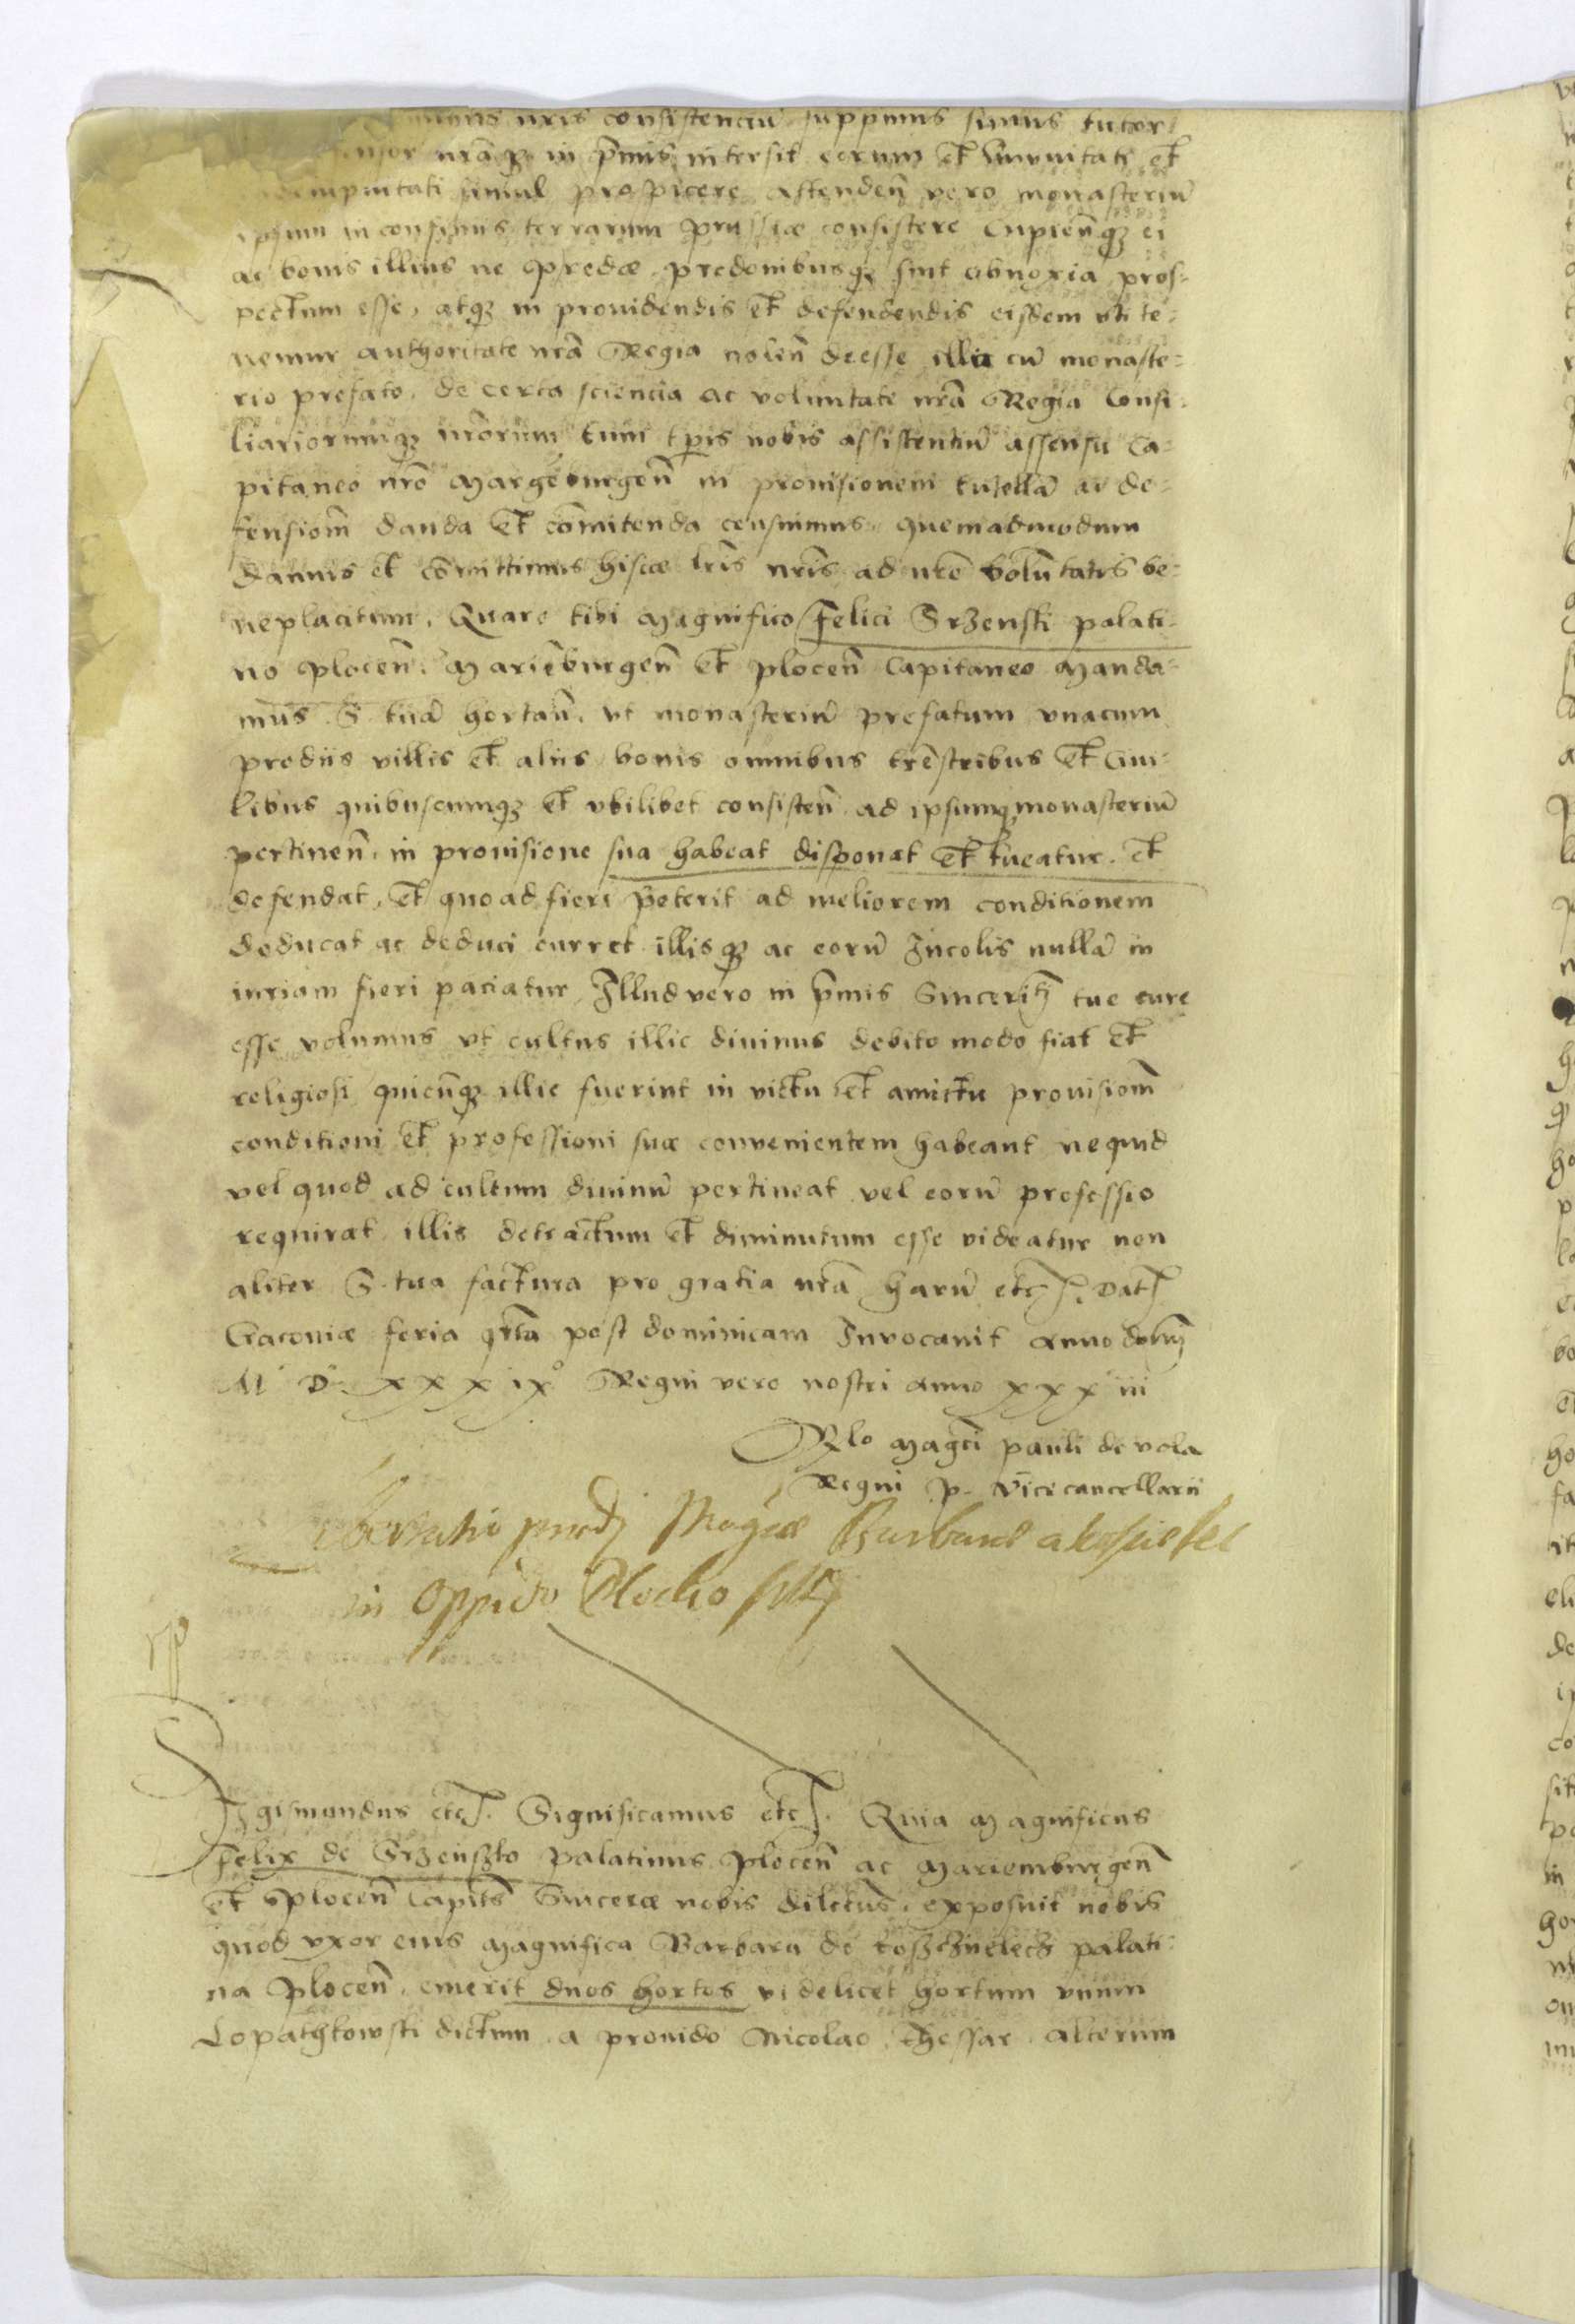 nris consistenciū suppmus simus tutor
nrāq₃ in p̄mis intersit eorum et immunitati et
simul prospicere attenden̄ vero monasteriū
ipsum in confinus terrarum prussiæ consistere Cupien̄q₃ ei
ac bonis illius ne predæ predonibusq₃ sint obnoxia pros-
pectum esse, atq₃ in providendis et defendendis eisdem uti te-
nemur authoritate nrā Regia nolen̄ deesse illa cū monaste-
rio prefato, de certa sciencia ac voluntate nrā Regia Consi-
liariorumq₃ nrōrum tum tp̄is nobis assistentiū assensu Ca-
pitaneo nrō Margeburgen̄ in provisionem tutellā ac de-
fensiom̄ danda et cōmitenda censuimus quemadmodum
damus et cōmittimus hisce lr̄is nrīs ad nrē volūtatis be-
neplacitum. Quare tibi Magnifico Felici Srzenski palati-
no plocen̄. Mariēburgen̄ et plocen̄ Capitaneo Manda-
mus S. tuā hortan̄. ut monasteriū prefatum unacum
prediis villis et aliis bonis omnibus trēstribus et Civi-
libus quibuscumq₃ et ubilibet consisten̄ ad ipsumq₃ monasteriū
pertinen̄. in provisione sua habeat disponat et tueatur. et
defendat, et quoad fieri poterit ad meliorem conditionem
deducat ac deduci curret illisq₃ ac eorū Incolis nullā in
iuriam fieri paciatur, Illud vero in p̄mis Sincerit₃ tue cure
esse volumus ut cultus illic divinus debito modo fiat et
religiosi quicūq₃ illic fuerint in victu et amictu provisiom̄
conditioni et professioni suæ convenientem habeant ne quid
vel quod ad cultum divinū pertineat vel eorū professio
requirat illis detractum et diminutum esse videatur non
aliter S. tua factura pro gratia nrā harū etc. Dat
Cracoviæ feria q̄rta post dominicam Invocavit Anno domī
M D xxxix° Regni vero nostri Anno xxxiii
Rlo Magci pauli de vola
Regni p. vicecancellarii
Magcæ Barbare a
in oppido Plocko
Sigismundus etc. Significamus etc. Quia Magnificus
Felix de Srzenszko palatinus plocen̄ ac Mariemburgen̄
et plocen̄ Capitā Sincere nobis dilectus. exposuit nobis
quod uxor eius Magnifica Barbara de palati-
na plocen̄. emerit duos hortos videlicet hortum unum
Lopathkowski dictum a provido Nicolao Thessar. alterum